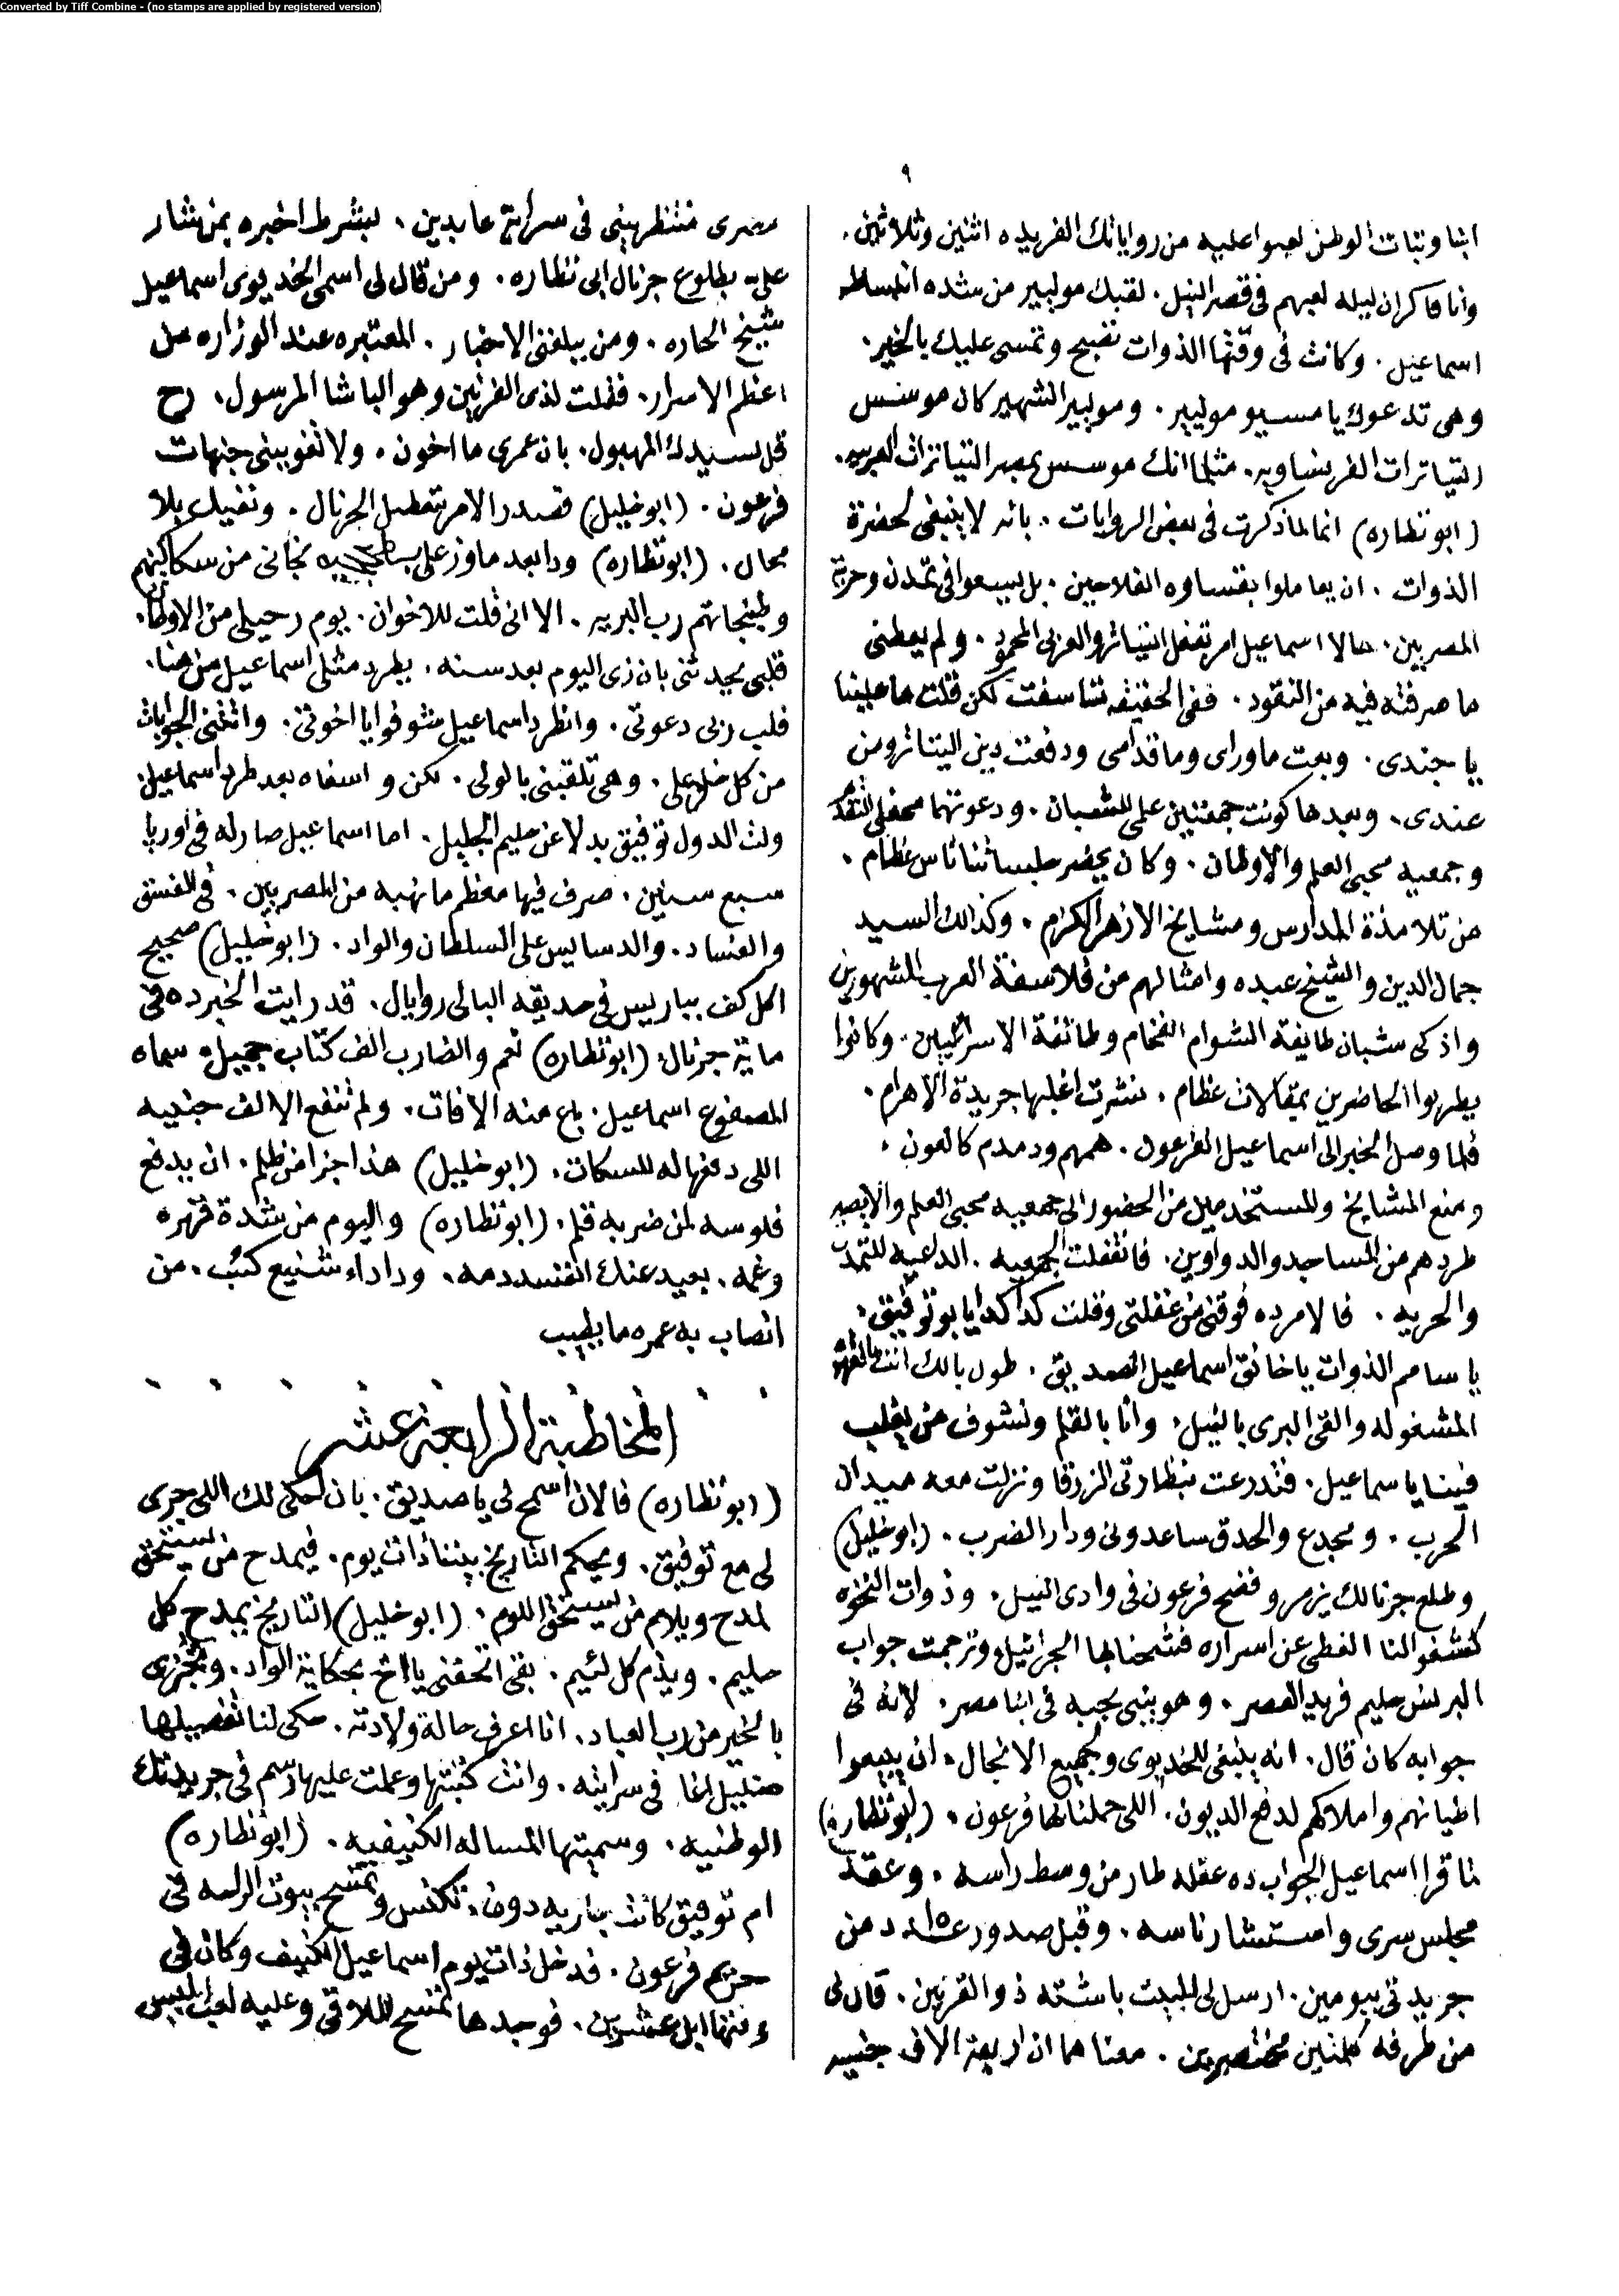 Converted by Tiff Combine - (no stamps are applied by registered version)
٩
ابنا وبنات الوطن لعبوا عليه من رواياتك الفريده اثنين وثلاثين.
وانا فاكر ان ليله لعبهم فى قصر النيل. لقبك موليير من شده انبساطه
اسماعيل. وكانت فى وقتها الذوات تصبح وتمسى عليك بالخير.
وهى تدعوك يا مسيو موليير. وموليير الشهير كان موسس
التياترات الفرنساويه. مثلما انك موسس بمصر التياترات العربيه.
(ابو نظاره) انما لما ذكرت فى بعض الروايات. بانه لا ينبغى لحضرة
الذوات. ان يعاملوا بقساوه الفلاحين. بل يسعوا فى تمدن وحرية
المصريين. حالا اسماعيل امر بقفل التياترو العربى المحمود. ولم يعطنى
ما صرفته فيه من النقود. ففى الحقيقه تاسفت لكن قلت ما علينا
يا جندى. وبعت ماوراى وما قدامى ودفعت دين التياترو من
عندى. وبعدها كونت جمعتين على للشعبان. ودعوتهما محفل التقدم
وجمعيه محبى العلم والاوطان. وكان يحضر جلساتنا ناس عظام.
من تلامذة المدارس ومشايخ الازهر الكرام. وكذالك السيد
جمال الدين والشيخ عبده وامثالهم من فلاسفة العرب المشهورين
واذكى شبان طايفة الشوام الفخام وطائفة الاسرائيليين. وكانوا
يطربوا الحاضرين بمقالات عظام. نشرت اغلبها جريدة الاهرام.
فلما وصل الخبر الى اسماعيل الفرعون. همهم ودمدم كالعون.
ومنع المشايخ والمستخدمين من الحضور الى جمعيه محبى العلم والا يصير
طردهم من المساجد والدواوين. فانقفلت الجمعيه. الداعيه للتمدن
والحريه. فالامر ده فوقنى من غفلتى وقلت كدا كدا يا بو توفيق.
يا سامم الذوات يا خانق اسماعيل الصديق. طول بالك انت بالقهوه
المشغوله والقى البرى بالنيل. وانا بالقلم ونشوف من يغلب
فينا يا سماعيل. فتدرعت بنظارتى الزرقا ونزلت معه ميدان
الحرب. ومجدع والحدق ساعدونى ودار الضرب. (ابو خليل)
وطلع جرنالك يزمر وفضح فرعون فى وادى النيل. وذوات النخوه
كشفوا لنا الغطى عن اسراره فشحنا بها الجرانيل وترجمت جواب
البرنس حليم فريد العصر. وهو ينبى بحبه فى ابنا مصر. لانه فى
جوابه كان قال. انه ينبغى للخديوى ولجميع الانجال. ان يبيعوا
اطيانهم واملاكهم لدفع الديون. اللى حملنا بها فرعون. (ابو نظاره)
لما قرا اسماعيل الجواب ده عقله طار من وسط راسه. وعقد
مجلس سرى واستشار ناسه. وقبل صدور عدد ١٥ من
جريدتى بيومين. ارسل لى للبيت باشته ذو القرنين. قال لى
من طرفه كلمتين مختصرين. معناهما ان اربعة الاف جنيه
مصرى منتظرينى فى سراية عابدين. بشرط اخبره بمن شار
على بطلوع جرنال ابى نظاره. ومن قال لى اسمى الخديوى اسماعيل
شيخ الحاره. ومن يبلغنى الاخبار. المعتبره عند الوزاره من
اعظم الاسرار. فقلت لذى القرنين وهو الباشا المرسول. رح
قل لسيدك المهبول. بان عمرى ما اخون. ولا تغوينى جنيهات
فرعون. (ابو خليل) فصدر الامر بتعطيل الجرنال. ونفيك بلا
محال. (ابو نظاره) ودا بعد ما وز على نجانى من سكاكينهم
وطبنجاتهم رب البريه. الا انى قلت للاخوان. يوم رحيلى من الاوطان.
قلبى يحدثنى بان زى اليوم بعد سنه. يطرد مثلى اسماعيل من هنا.
قلب ربى دعوتى. وانطرد اسماعيل شوفوا يا اخوتى. واتتنى الجوابات
من كل خل وعلى. وهى تلقبنى بالولى. لكن وا اسفاه بعد طرد اسماعيل
ولت الدول توفيق بدلا عن حليم الجليل. اما اسماعيل صار له فى اوربا
سبع سنين. صرف فيها معظم ما نهبه من المصريين. فى الفسق
والفساد. والدسايس على السلطان والواد. (ابو خليل) صحيح
اكل كف بباريس فى حديقه البالى روايال. قد رايت الخبر ده فى
ماية جرنال. (ابو نظاره) نعم والضارب الف كتاب جميل. سماه
المصفوع اسماعيل. باع منه الافات. ولم تنفع الالف جنيه
اللى دفعها له للسكات. (ابو خليل) هذا جزا من ظلم. ان يدفع
فلوسه لمن ضربه قلم. (ابو نظاره) واليوم من شدة قهره
وغمه. بعيد عنك انفسد دمه. ودا داء شنيع كئب. من
انصاب به عمره ما يطيب
المخاطبة الرابعة عشر
(ابو نظاره) فالان اسمح لى يا صديق. بان احكى لك اللى جرى
لى مع توفيق. ويحكم التاريخ بيننا ذات يوم. فيمدح من يستحق
لمدح ويلام من يستحق اللوم. (ابو خليل) التاريخ يمدح كل
حليم. ويذم كل لئيم. بقى اتحفنى يا اخ بحكاية الواد. وتجزى
بالخير من رب العباد. انا اعرف حالة ولادته. حكى لنا تفصيلها
خليل اغا فى سرايته. وانت كتبتها وعملت عليها رسم فى جريدتك
الوطنيه. وسميتها المساله الكنيفيه. (ابو نظاره)
ام توفيق كانت جاريه دون. تكنس وتمسح بيوت الراحه فى
حريم فرعون. فدخل ذات يوم اسماعيل الكنيف وكان فى
وقتها ابن عشرين. فوجدها تمسح الملاقى وعليه لعب ابليس